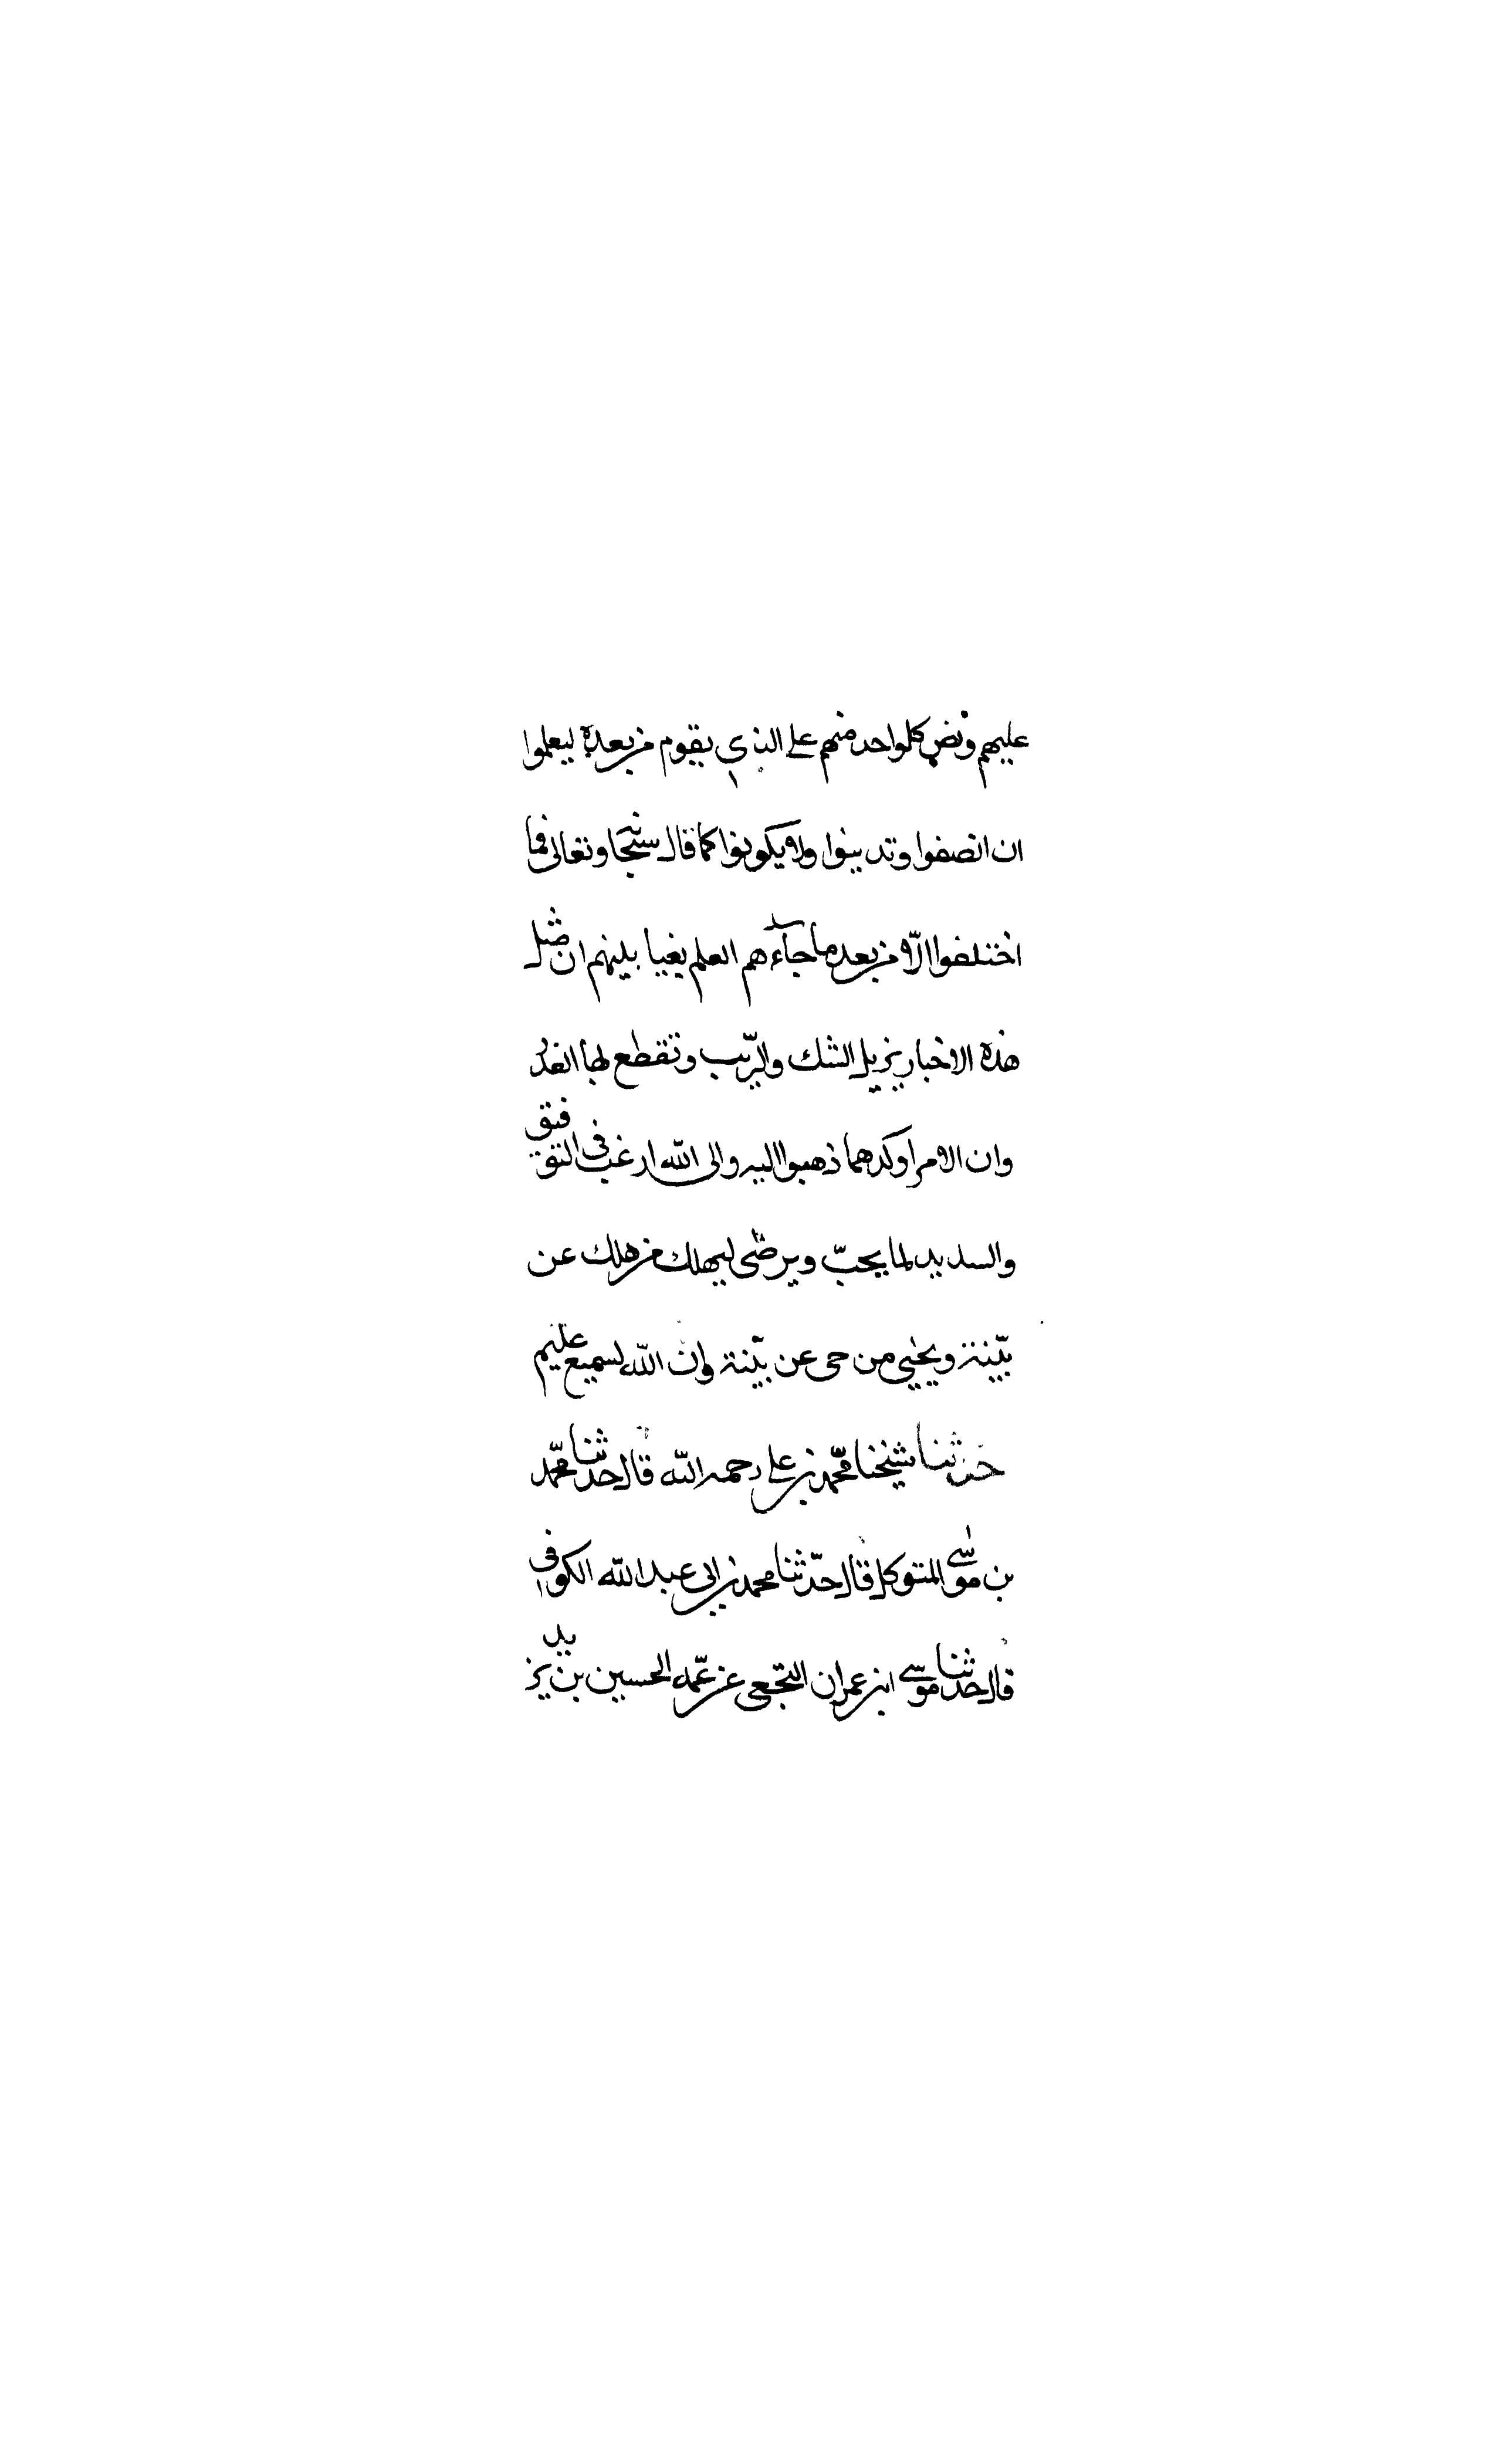 عليهم ونص كلواحد منهم على الذي يقوم من بعده ليعلموا
ان انصفوا وتدينوا ولا يكونوا كما قال سبحا وتعالى فما
اختلفوا الّا من بعد ما جآءهم العلم بغيا بينهم ان مثل
هذه الاخبار يزيل الشك والرّيب وتقطع لها العذر
وان الامر اوكد مما ذهبوا اليه والى الله ارغب في التوفيق
والسديد لما يحبّ ويرضى ليهلك من هلك عن
بيّنة ويحيي من حى عن بيّنة وان الله لسميع عليم
حدثنا شيخنا محّمد بن على رحمه الله قال حدثنا محّمد
بن موسى المتوكل قال حدّثنا محمد بن ابى عبد الله الكوفي
قال حدثنا موسى ابن عمران النخعى عن عمّه الحسين بن يزيد